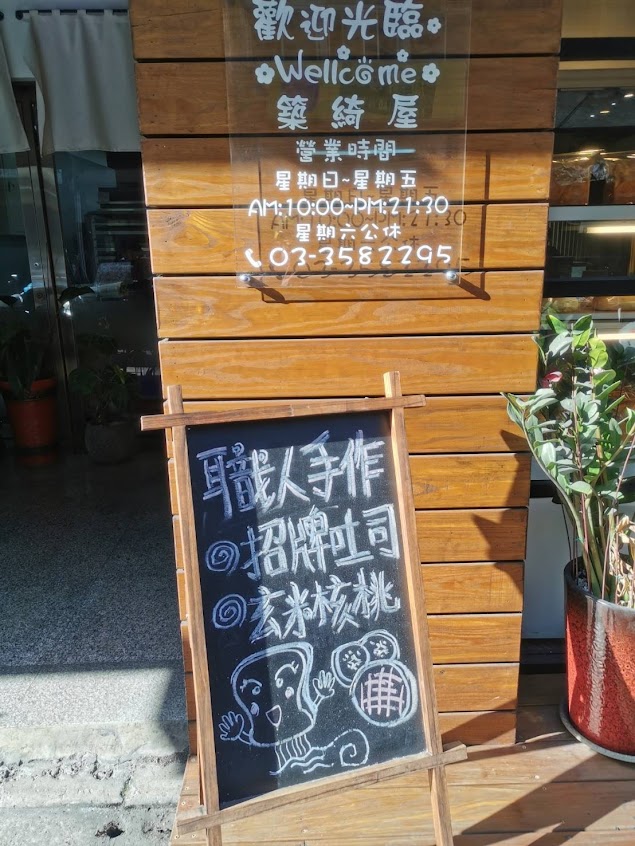 歡迎光臨
Wellcome
築綺屋
營業時間
星期日~星期五
AM:10:00~PM:21:30
星期六公休
03-3582295
職人手作
招牌吐司
玄米核桃